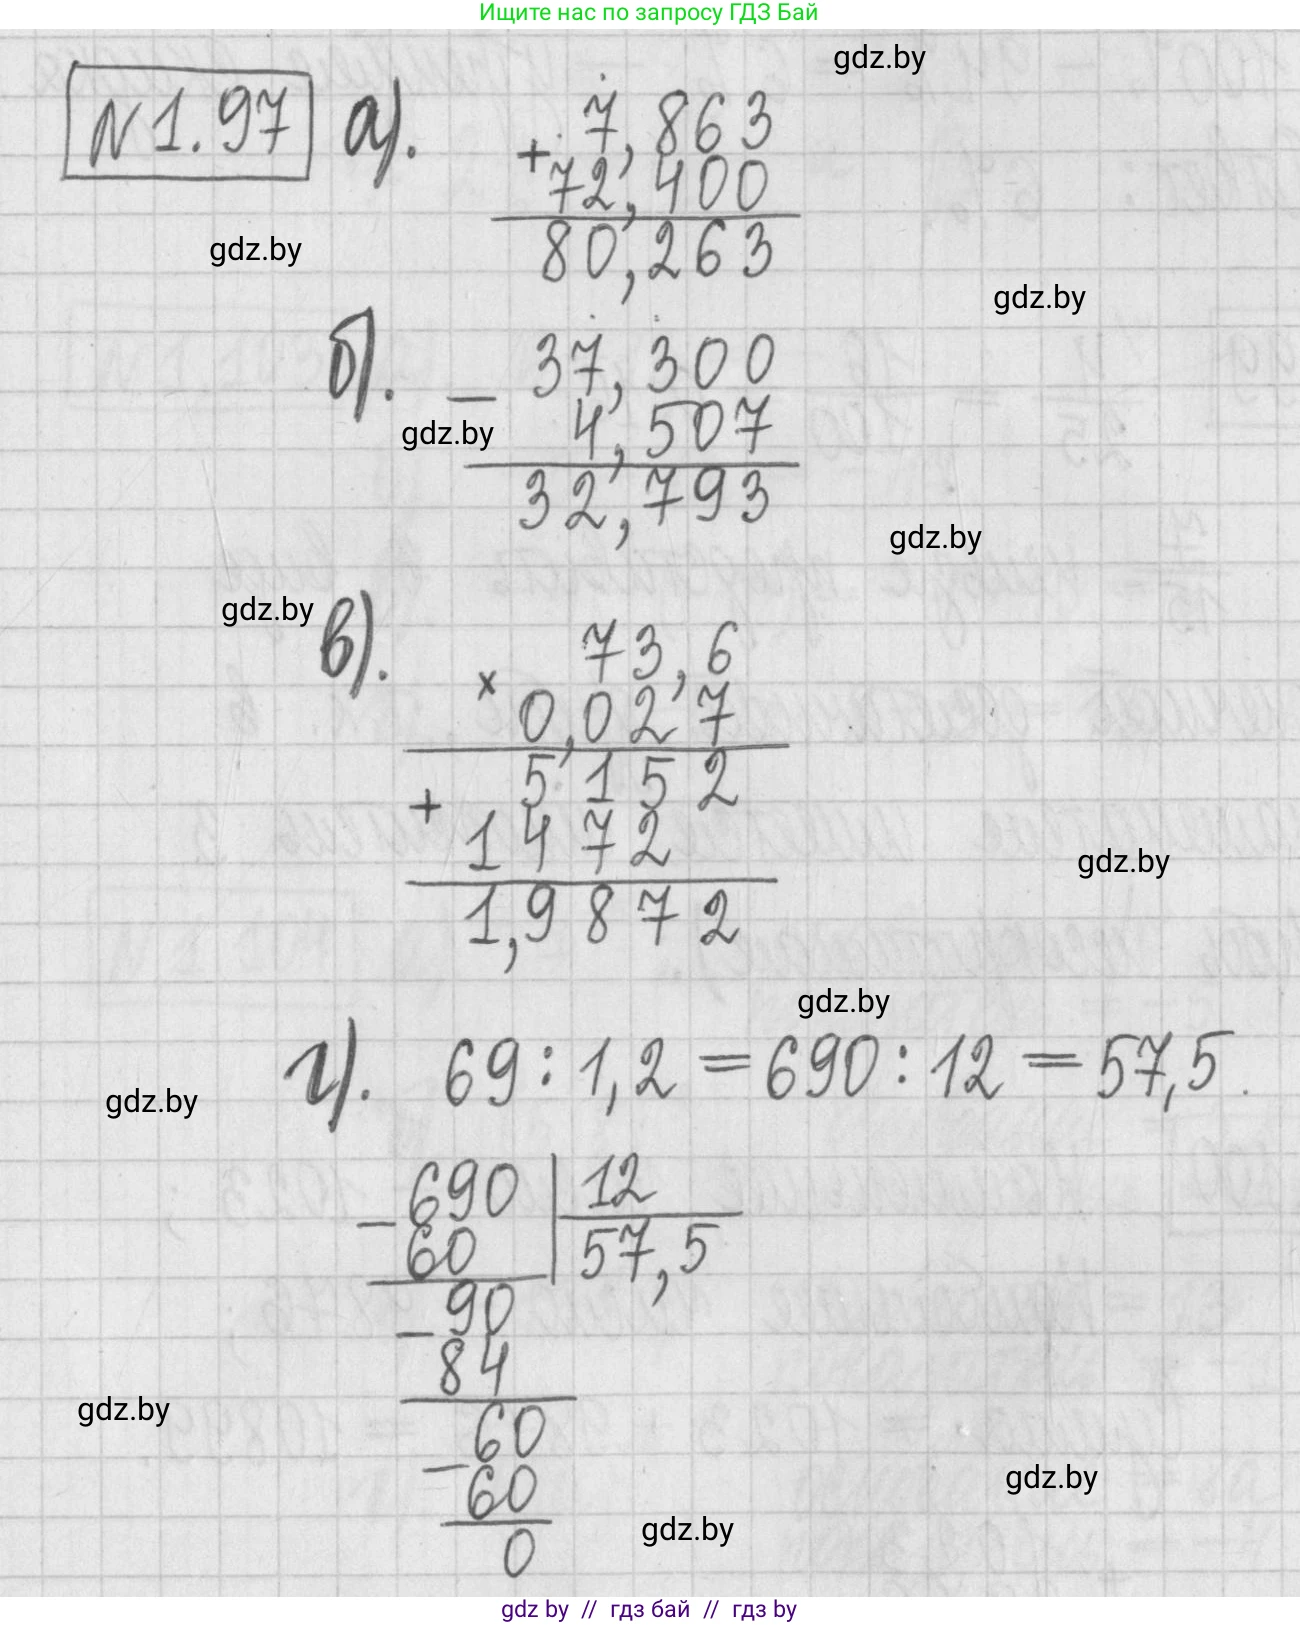 Ищите нас по запросу ГДЗ Бай
gdz.by
N 1.97 а).
7,863
+
72,400
80,263
gdz.by
gdz.by
б).
37,300
−
4,507
gdz.by
32,793
gdz.by
gdz.by
в).
73,6
×
0,027
5152
+
1472
gdz.by
1,9872
gdz.by
г). 69 : 1,2 = 690 : 12 = 57,5.
gdz.by
− 690 | 12
60 57,5
− 90
84
gdz.by
− 60
60
gdz.by
gdz.by
0
gdz by // гдз бай // гдз by